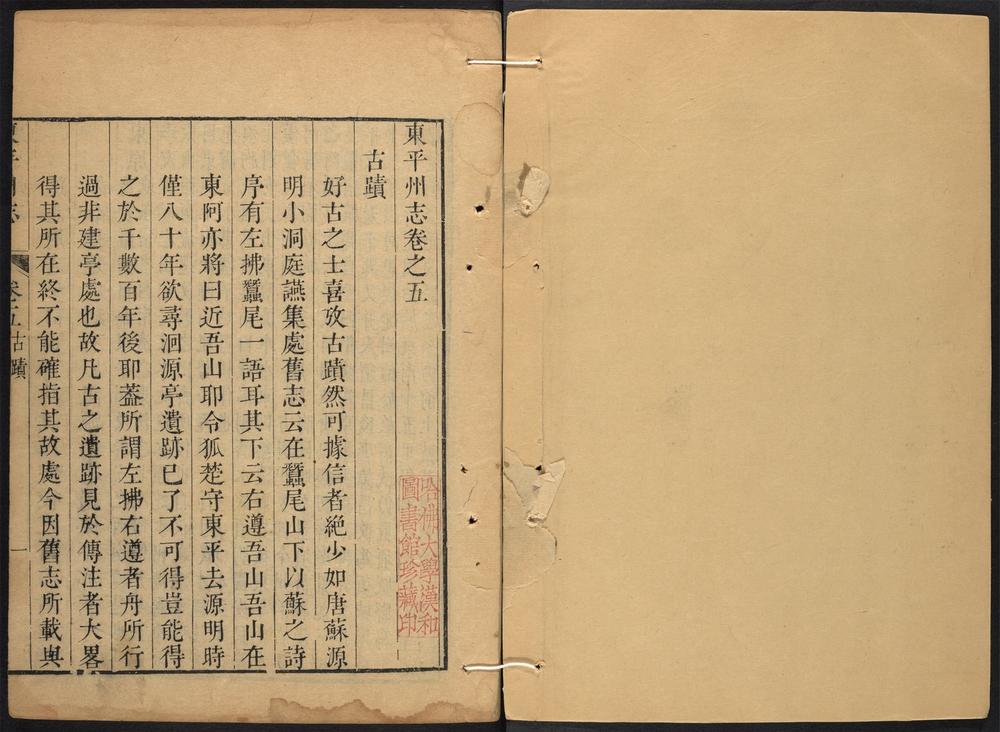 東平州志卷之五
古蹟
好古之士喜攷古蹟然可據信者絶少如唐蘇源
明小洞庭讌集處舊志云在蠶尾山下以蘇之詩
序有左拂蠶尾一語耳其下云右遵吾山吾山在
東阿亦將曰近吾山耶令狐楚守東平去源明時
僅八十年欲尋洄源亭遺跡已了不可得豈能得
之於千數百年後耶葢所謂左拂右遵者舟所行
過非建亭處也故凡古之遺跡見於傳注者大畧
得其所在終不能確指其故處今因舊志所載與
東平州志
卷五古蹟
一
哈佛大學漢和
圖書館珍藏印